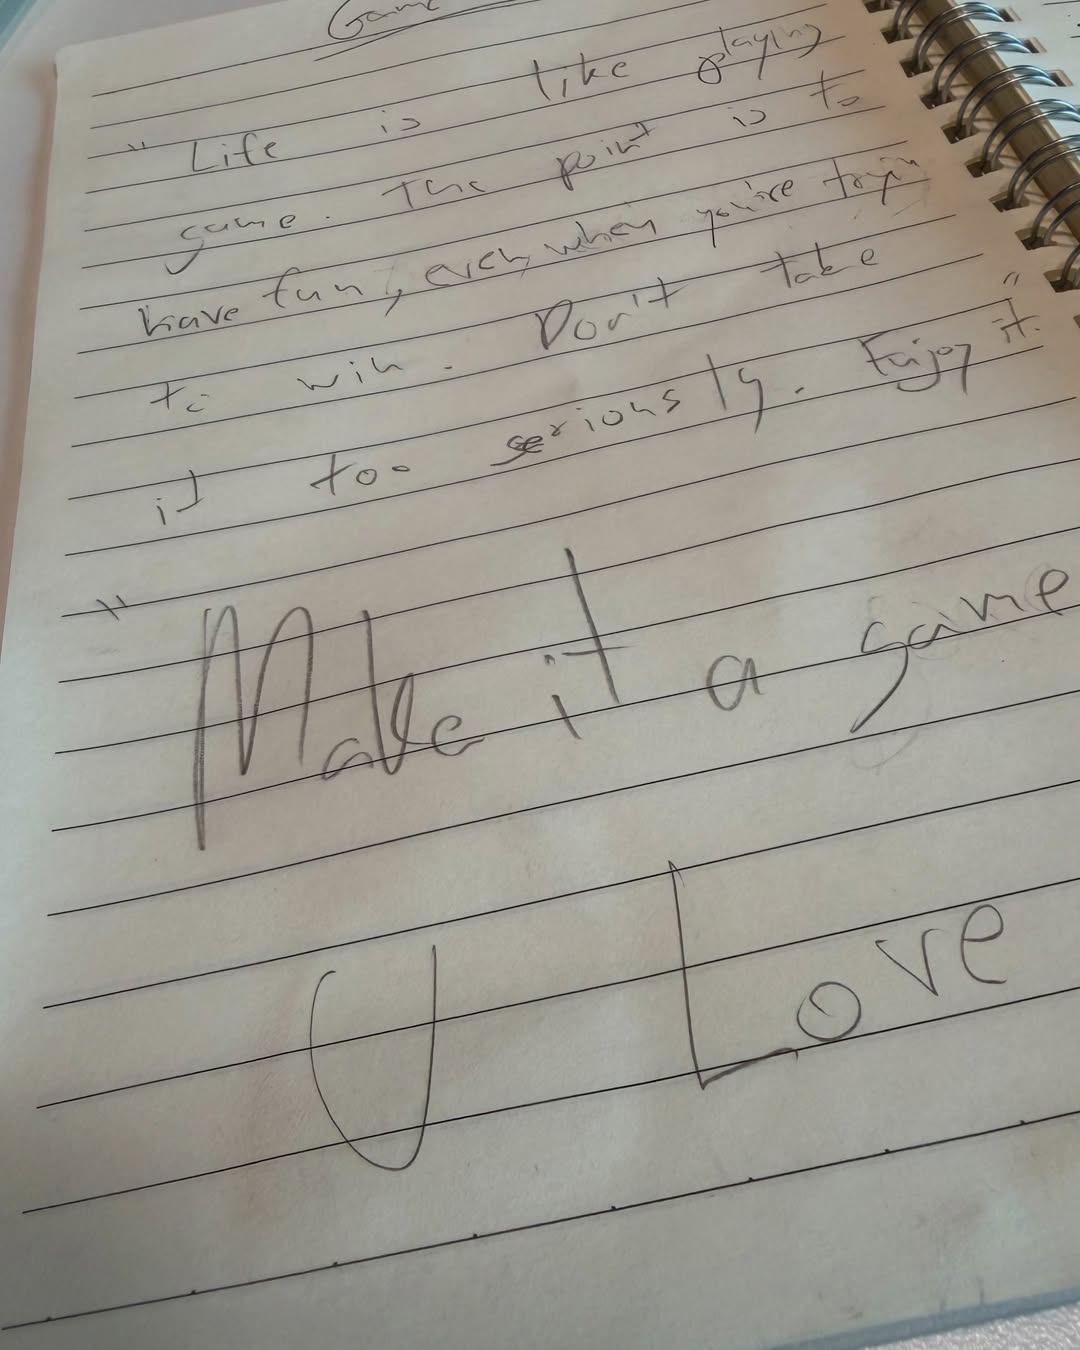 Game
" Life is like playing
game. The point is to
have fun, even when you're tryin
to win. Don't take
it too seriously. Enjoy it."
"Make it a game
U Love